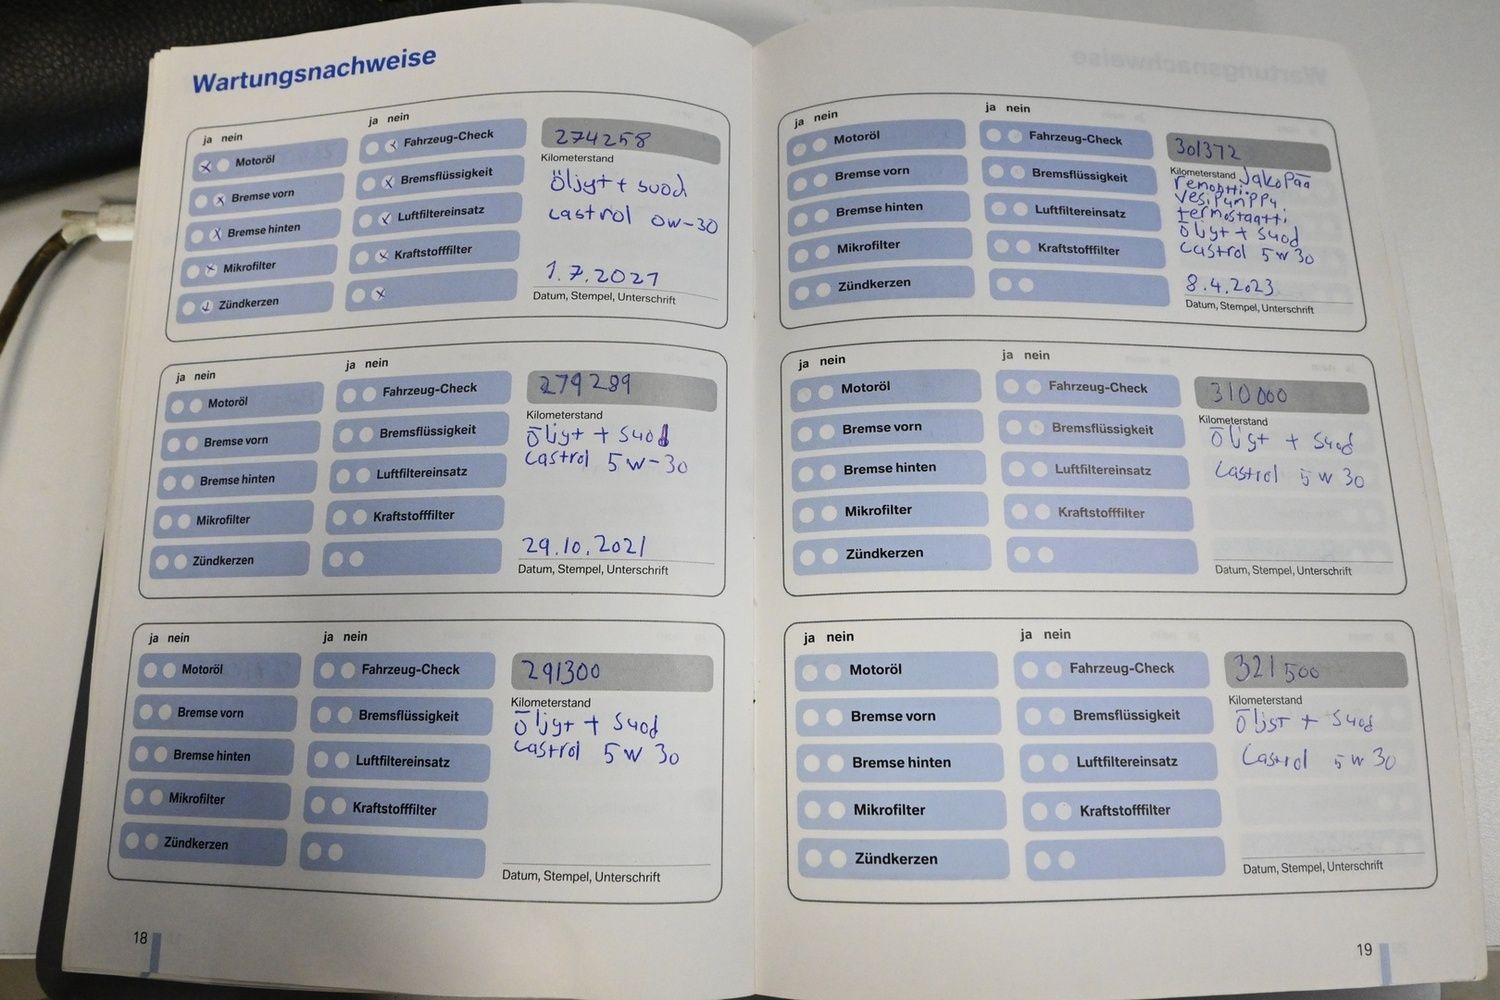 Wartungsnachweise
ja nein
ja nein
Motoröl
Bremse vorn
Bremse hinten
Mikrofilter
Zündkerzen
Fahrzeug-Check
Bremsflüssigkeit
Luftfiltereinsatz
Kraftstofffilter
274258
Kilometerstand
öljyt + suod
castrol 0w-30
1.7.2021
Datum, Stempel, Unterschrift
ja nein
ja nein
Motoröl
Bremse vorn
Bremse hinten
Mikrofilter
Zündkerzen
Fahrzeug-Check
Bremsflüssigkeit
Luftfiltereinsatz
Kraftstofffilter
279289
Kilometerstand
öljyt + suod
castrol 5w-30
29.10.2021
Datum, Stempel, Unterschrift
ja nein
ja nein
Motoröl
Bremse vorn
Bremse hinten
Mikrofilter
Zündkerzen
Fahrzeug-Check
Bremsflüssigkeit
Luftfiltereinsatz
Kraftstofffilter
291300
Kilometerstand
öljyt + suod
castrol 5w 30
Datum, Stempel, Unterschrift
18
ja nein
ja nein
Motoröl
Bremse vorn
Bremse hinten
Mikrofilter
Zündkerzen
Fahrzeug-Check
Bremsflüssigkeit
Luftfiltereinsatz
Kraftstofffilter
301372
Kilometerstand Jakopää
remontti.
vesipumppu,
termostaatti
öljyt + suod
castrol 5w30
8.4.2023
Datum, Stempel, Unterschrift
ja nein
ja nein
Motoröl
Bremse vorn
Bremse hinten
Mikrofilter
Zündkerzen
Fahrzeug-Check
Bremsflüssigkeit
Luftfiltereinsatz
Kraftstofffilter
310000
Kilometerstand
öljyt + suod
castrol 5w 30
Datum, Stempel, Unterschrift
ja nein
ja nein
Motoröl
Bremse vorn
Bremse hinten
Mikrofilter
Zündkerzen
Fahrzeug-Check
Bremsflüssigkeit
Luftfiltereinsatz
Kraftstofffilter
321500
Kilometerstand
öljyt + suod
Castrol 5w 30
Datum, Stempel, Unterschrift
19